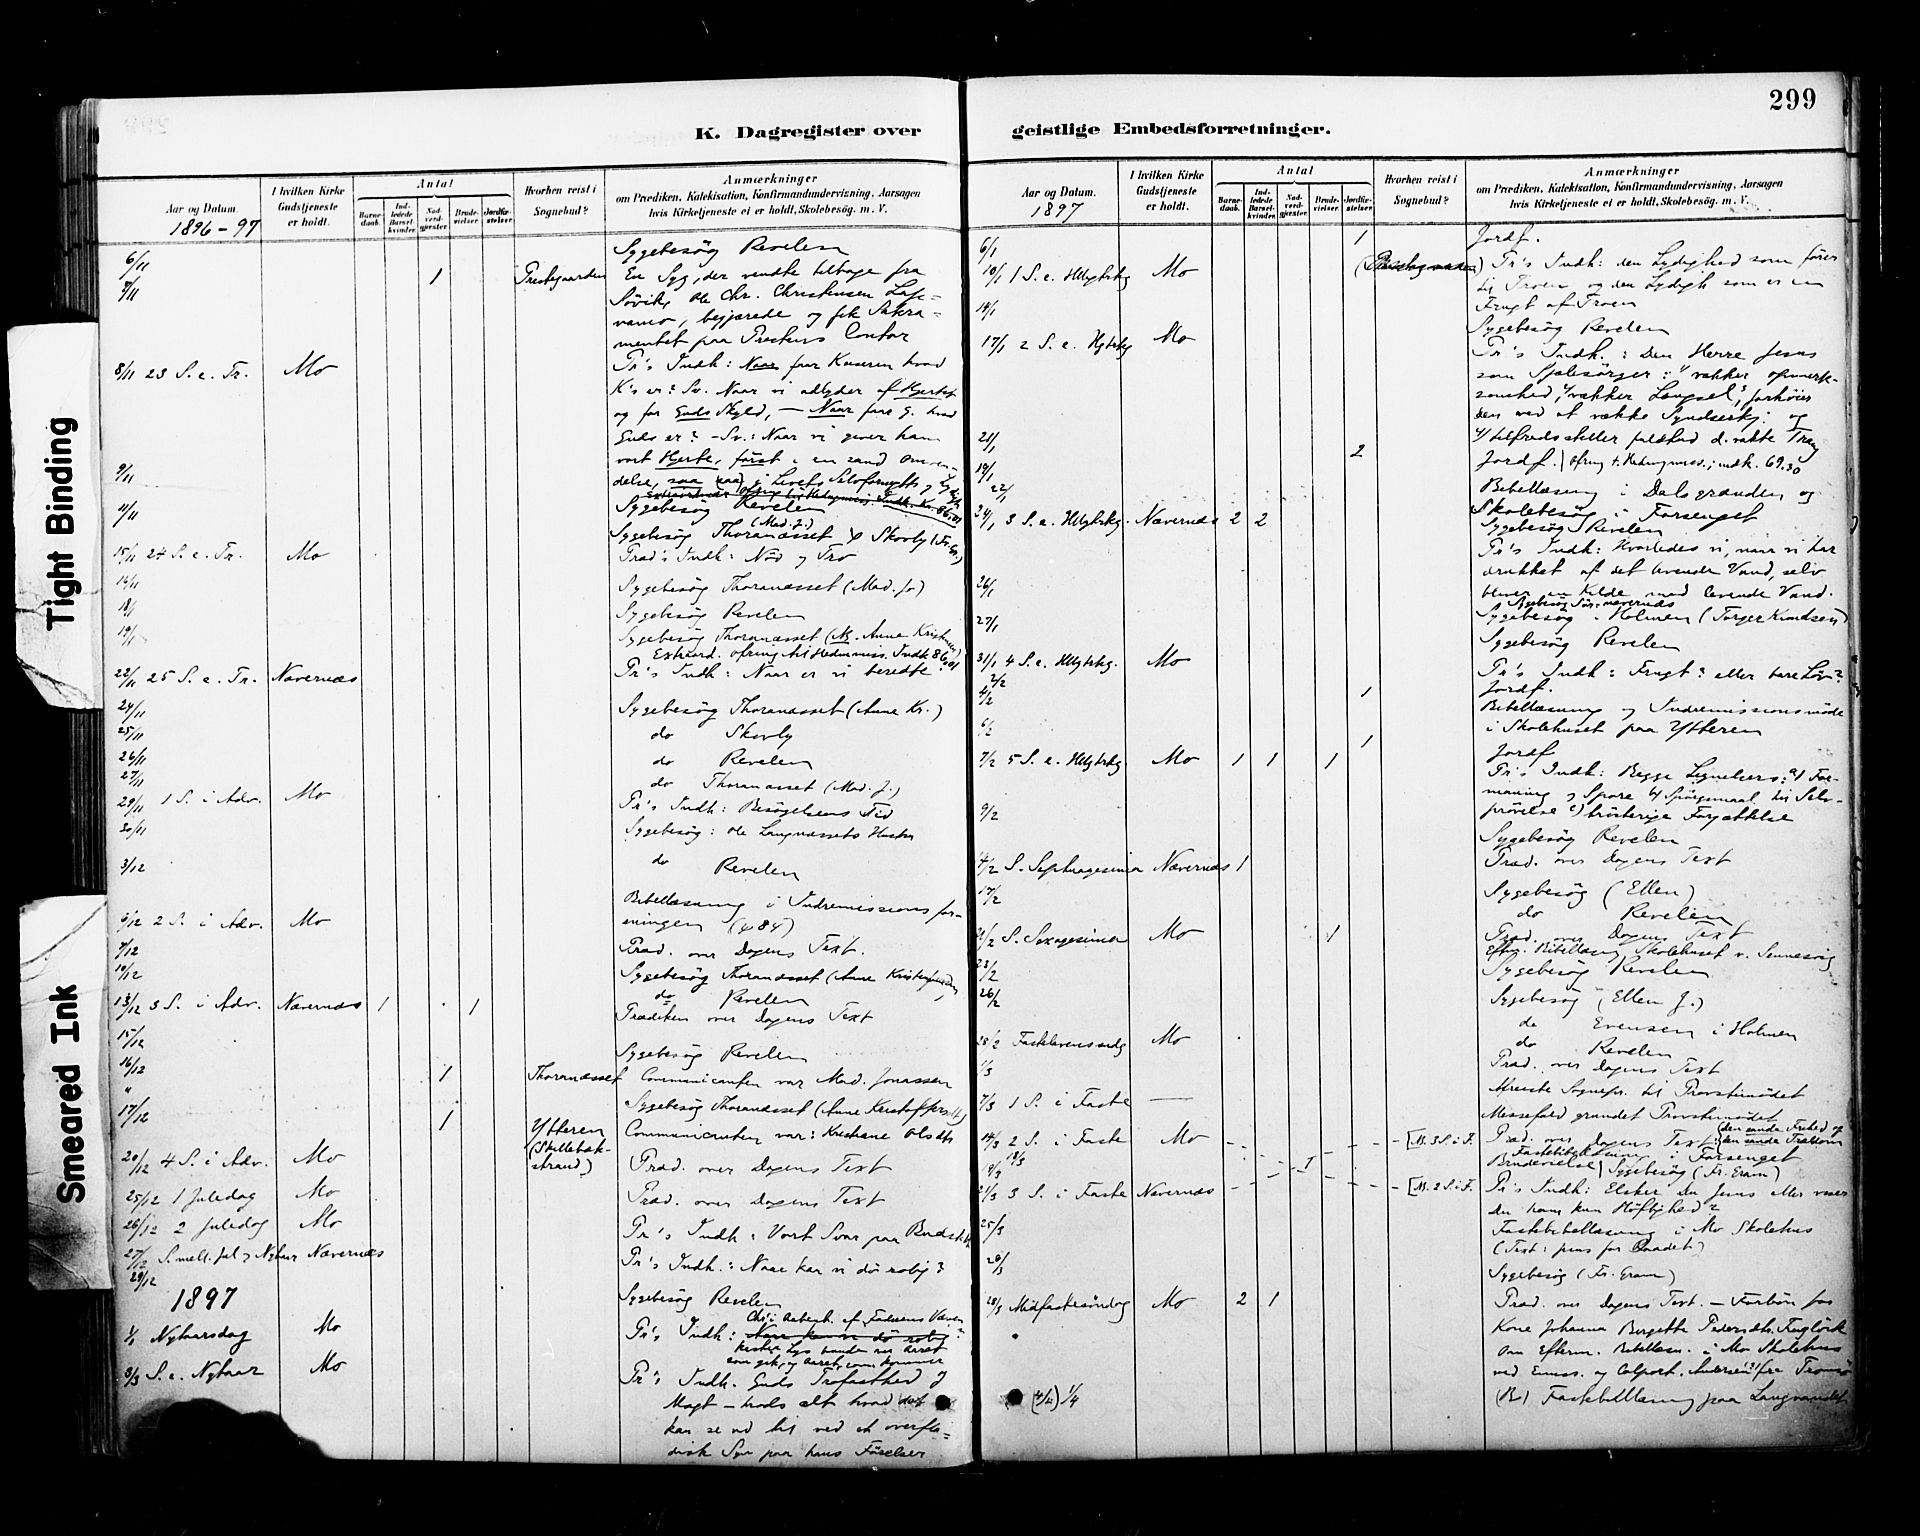 299
K. Dagregister over
geistlige Embedsforretninger.
Tight Binding
Smeared Ink
Aar og Datum.
1896 - 97
I hvilken Kirke Gudstjeneste er holdt.
Antal
Barnedaab.
Indledede Barselkvinder.
Nadverdgjester
Brudevielser
Jordfæstelser.
Hvorhen reist i Sognebud?
Anmærkninger
om Prædiken, Katekisation, Konfirmandundervisning, Aarsagen
hvis Kirketjeneste ei er holdt, Skolebesøg. m. V.
6/11 Sygebesøg Revelen
7/11 1 Prestegaarden En Syg, der vendte tilbage fra
Søvik, Ole Chr. Christensen
, begjærede og fik Sakra-
mentet paa Prestens Contor
8/11 23 S. e. Tr. Mo Pr's Indh: Naar faar Keiseren hvad
K's er? Sv. Naar vi adlyder af Hjertet
og for Guds Skyld, — Naar faar G. hvad
Guds er? - Sv.: Naar vi giver ham
vort Hjerte, først i en sand Omven-
delse, saa
9/11 Sygebesøg Revelen
11/11 Sygebesøg Thoranæsset (Mad. J.) & Skovly
15/11 24 S. e. Tr. Mo Præd's Indh: Nød og Tro
Sygebesøg Thoranæsset (Mad. J.)
Sygebesøg Revelen
Sygebesøg Thoranæsset
Extraord. ofring til Hedmiss. Indk. 86,01
22/11 25 S. e. Tr. Nævernæs Pr's Indh: Naar er vi beredte?
24/11 Sygebesøg Thoranæsset (Anne Kr.)
25/11 do Skovly
26/11 do Revelen
27/11 do Thoranæsset (Mad. J.)
29/11 1 S. i Adv. Mo Pr's Indh: Besøgelsens Tid
30/11 Sygebesøg: Ole Langnæssets Hustru
3/12 do Revelen
Bibellæsning i Indremissionsfor-
eningen
6/12 2 S. i Adv. Mo Præd. over Dagens Text.
7/12 Sygebesøg Thoranæsset
10/12 do Revelen
13/12 3 S. i Adv. Nævernæs 1 1 Prædiken over Dagens Text
15/12 Sygebesøg Revelen
16/12 1 Thoranæsset Communicanten var Mad. Jonassen
" Sygebesøg Thoranæsset
17/12 1 Ytteren
(Skillebæk-
strand) Communicanten var: Kristiane
20/12 4 S. i Adv. Mo Præd. over Dagens Text
25/12 1 Juledag Mo Præd. over Dagens Text
26/12 2 Juledag Mo Pr's Indh: Vort Svar paa
27/12 S. mell. Jul og Nytaar Nævernæs Pr's Indh.: Naar kan vi dø rolig?
29/12 Sygebesøg Revelen
1897
1/1 Nytaarsdag Mo Pr's Indh:
S. e. Nytaar Mo Pr's Indh. Guds Trofasthed og
Magt — trods alt hvad det
kan se ud til ved et overfla-
disk Syn paa hans Førelser
Aar og Datum.
1897
I hvilken Kirke Gudstjeneste er holdt.
Antal
Barnedaab.
Indledede Barselkvinder.
Nadverdgjester
Brudevielser.
Jordfæstelser.
Hvorhen reist i Sognebud?
Anmærkninger
om Prædiken, Katekisation, Konfirmandundervisning, Aarsagen
hvis Kirketjeneste ei er holdt, Skolebesøg. m. V.
6/1 1 Jordf.
10/1 1 S. e. Hlgtrkg Mo Pr's Indh: den Lydighed som fører
til Troen og den Lydigh som er en
Frugt af Troen
14/1 Sygebesøg Revelen
17/1 2 S. e. Hgtrkg Mo Pr's Indh.: Den Herre Jesus
som Sjælesørger: 1/ vækker opmærk-
somhed, 2/ vækker Længsel,
den ved at vække Syndserkj: og
4/ tilfredsstiller
2 Jordf.
Bibellæsning i Dalsgrenden og
Skolebesøg i Forsenget
22/1 Sygebesøg Revelen
24/1 3 S. e. Hlgtrkg. Nævernæs 2 2 Pr's Indh: Hvorledes vi, naar vi har
drukket af det levende Vand, selv
bliver en Kilde med levende Vand.
26/1 Sygebesøg i Holmen (Torger Knudsen)
27/1 Sygebesøg Revelen
31/1 4 S. e. Hlgtrkg. Mo Pr's Indh: Frugt? eller bare Løv?
2/2 1 Jordf.
4/2 Bibellæsning og Indremissionsmøde
i Skolehuset paa Ytteren
6/2 1 Jordf
7/2 5 S. e. Hlgtrkg Mo 1 1 1 Pr's Indh: Begge Lignelser: a) For-
maning og Spore b) Spørgsmaal til Selv-
prøvelse c) trøsterige Forjættelse
9/2 Sygebesøg Revelen
14/2 S. Septuagesima Nævernæs 1 Præd. over Dagens Text
17/2 Sygebesøg (Ellen)
do Revelen
21/2 S. Sexagesima Mo 1 Præd. over Dagens Text
23/2 Sygebesøg Revelen
26/2 Sygebesøg (Ellen J.)
do Evensen i Holmen
do Revelen
28/2 Fastelavenssøndg Mo Præd. over Dagens Text
1/3 Afreiste Sognepr. til Provstimødet
7/3 1 S. i Faste — Messefald grundet Provstimødet
14/3 2 S. i Faste Mo [M. 3 S. i F. Præd. over Dagens Text
18/3 Fastebibellæsning i Forsenget
19/3 1 Brudevielse Sygebesøg (Fr. Gram)
21/3 3 S. i Faste Nævernæs [M. 2 S. i F. Pr's Indh: Elsker du Jesus eller viser
du ham kun Høflighed?
25/3 Fastebibellæsning i Mo Skolehus
Sygebesøg (Fr. Gram)
28/3 Midfastesøndag Mo 2 1 Præd. over Dagens Text. — Forbøn for
Kone Johanna Bergette
Om Efterm. Bibellæsn. i Mo Skolehus
ved Emiss. og Colport. Andersen fra Tromsø
1/4 Fastebibellæsning paa Langvandet